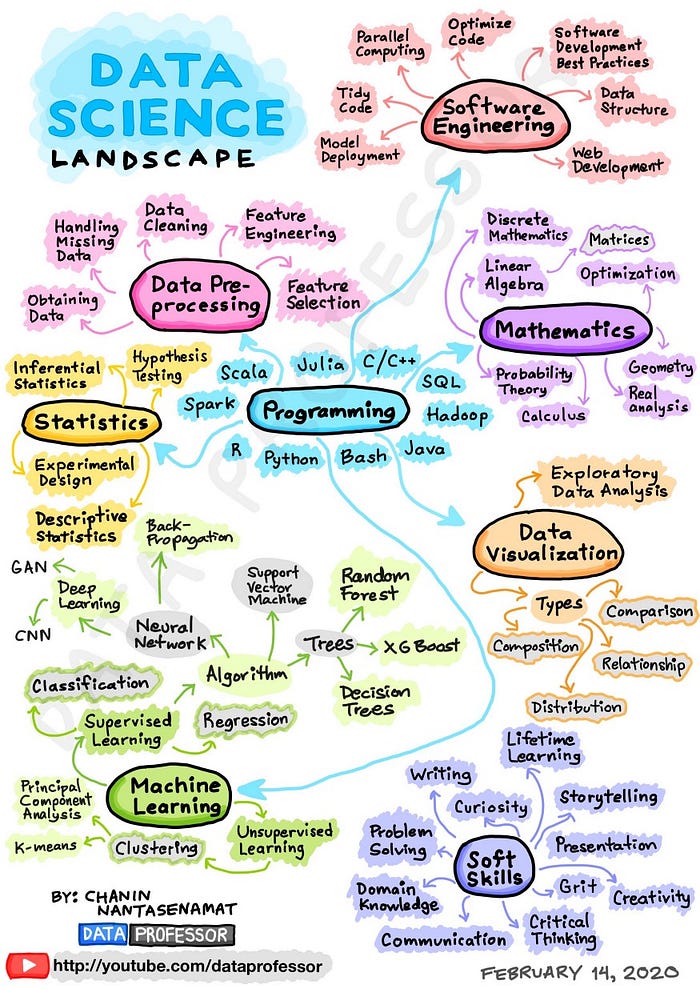 DATA
SCIENCE
LANDSCAPE
Parallel
Computing
Optimize
Code
Software
Development
Best Practices
Tidy
Code
Software
Engineering
Data
Structure
Model
Deployment
Web
Development
Handling
Missing
Data
Data
Cleaning
Feature
Engineering
Obtaining
Data
Data Pre-
processing
Feature
Selection
Discrete
Mathematics
Matrices
Linear
Algebra
Optimization
Mathematics
Probability
Theory
Calculus
Geometry
Real
analysis
Inferential
Statistics
Hypothesis
Testing
Statistics
Experimental
Design
Descriptive
Statistics
Scala
Julia
C/C++
SQL
Spark
Programming
Hadoop
R
Python
Bash
Java
Exploratory
Data Analysis
Data
Visualization
Types
Comparison
Composition
Relationship
Distribution
Back-
Propagation
GAN
Deep
Learning
CNN
Neural
Network
Support
Vector
Machine
Random
Forest
Trees
XG Boost
Decision
Trees
Algorithm
Classification
Supervised
Learning
Regression
Machine
Learning
Principal
Component
Analysis
K-means
Clustering
Unsupervised
Learning
Lifetime
Learning
Writing
Curiosity
Storytelling
Problem
Solving
Soft
Skills
Presentation
Domain
Knowledge
Grit
Creativity
Communication
Critical
Thinking
BY: CHANIN
NANTASENAMAT
DATA PROFESSOR
http://youtube.com/dataprofessor
FEBRUARY 14, 2020
DATA PROFESSOR